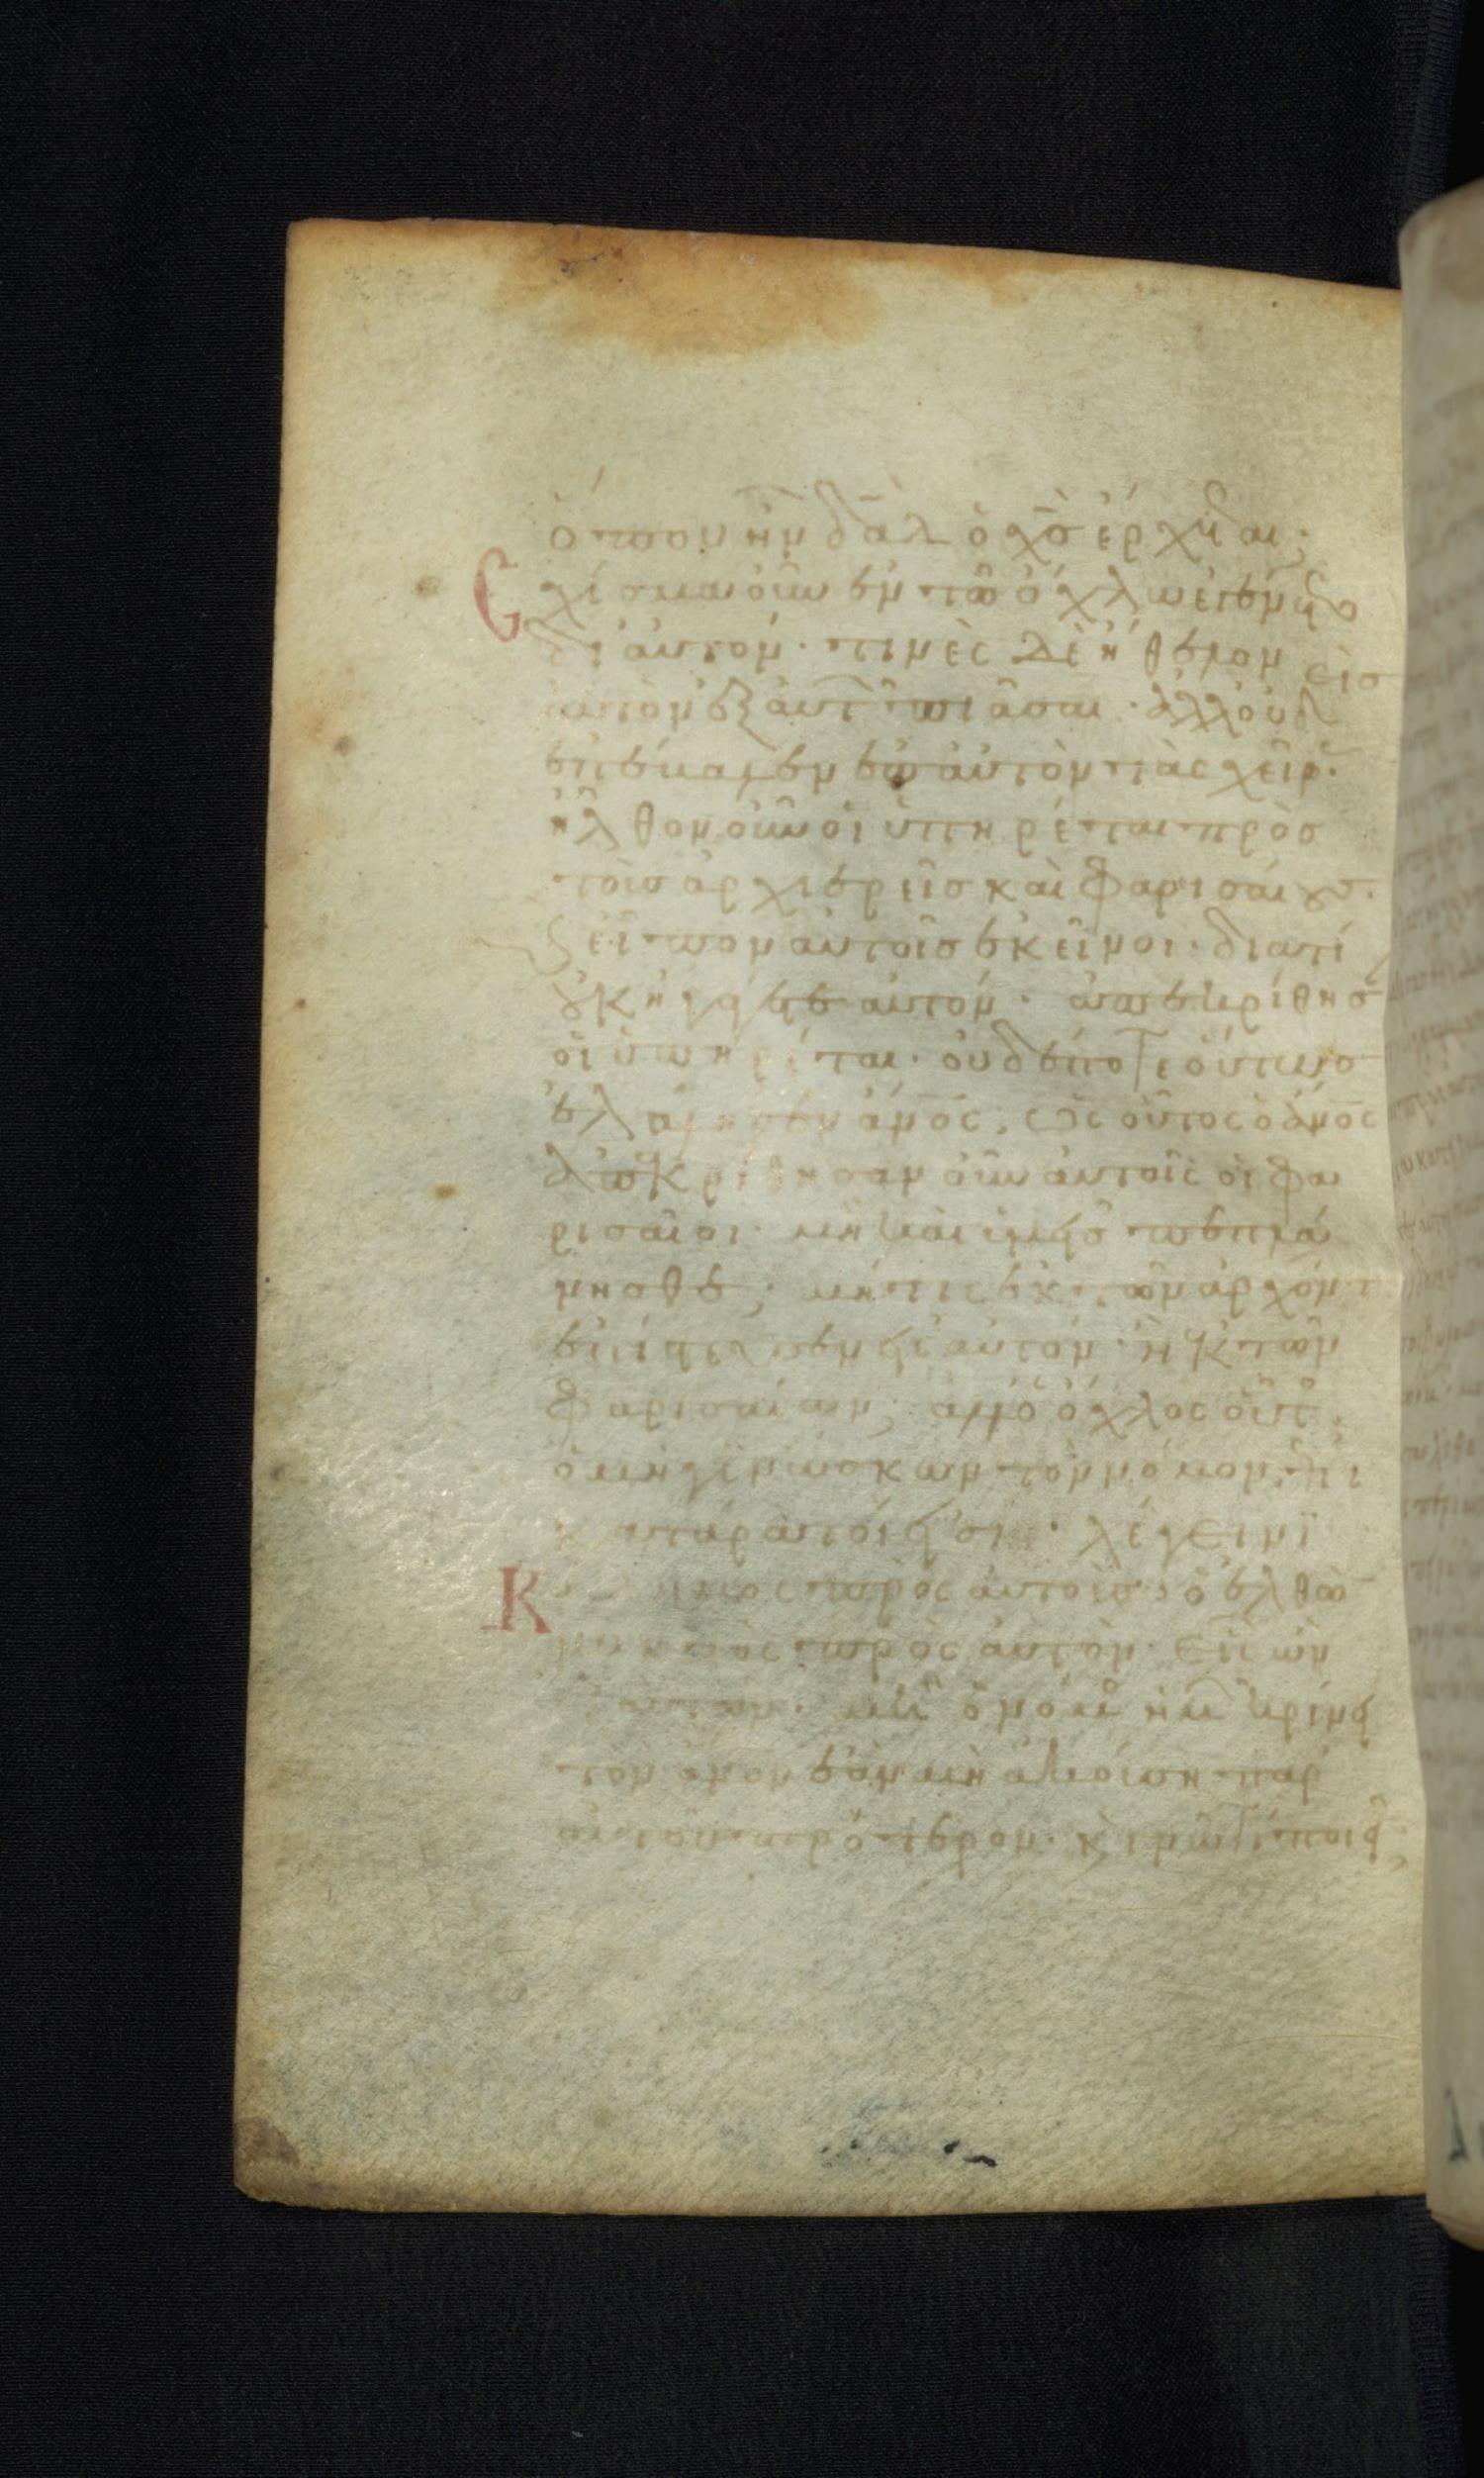 ὅπου ἦν δαδ ὁ χς ἔρχεται;
Σχίσμα οὖν ἐν τῶ ὄχλω ἐγένετο
δι' αὐτόν· τινὲς δὲ ἤθελον
αὐτὸν ἐξ αὐτ πιάσαι· ἀλλ' οὐδεὶσ
ἐπέβαλεν ἐπ' αὐτὸν τὰς χεῖρ
ἦλθον οὖν οἱ ὑπηρέται πρὸσ
τοὺσ ἀρχιερεῖσ καὶ φαρισαίουσ·
εἶπον αὐτοῖσ ἐκεῖνοι· διατί
οὐκ ἠγάγετε αὐτόν· ἀπεκρίθησ
οἱ ὑπηρέται· οὐδέποτε οὕτωσ
ἐλάλησεν ἄνος, ὡς οὗτος ὁ ἄνος
ἀπεκρίθησαν οὖν αὐτοῖς οἱ φα
ρισαῖοι· μὴ καὶ ὑμεῖσ πεπλά
νησθε; μή τις ἐκ τῶν ἀρχόντ
ἐπίστευσεν εἰσ αὐτόν· ἢ ἐκ τῶν
φαρισαίων; ἀλλ' ὁ ὄχλος οὗτ
ὁ μὴ γινώσκων τὸν νόμον, ἐπι
κατάρατοί εἰσι· λέγει νι
Κόδημος πρὸς αὐτούσ· ὁ ἐλθὼ
νυκτὸς πρὸς αὐτὸν· εἷς ὢν
ἐξ αὐτῶν· μὴ ὁ νόμο ἡμ κρίνει
τὸν ἄνον ἐὰν μὴ ἀκούση παρ
αὐτοῦ πρότερον· κ γνῶ τί ποιεῖ